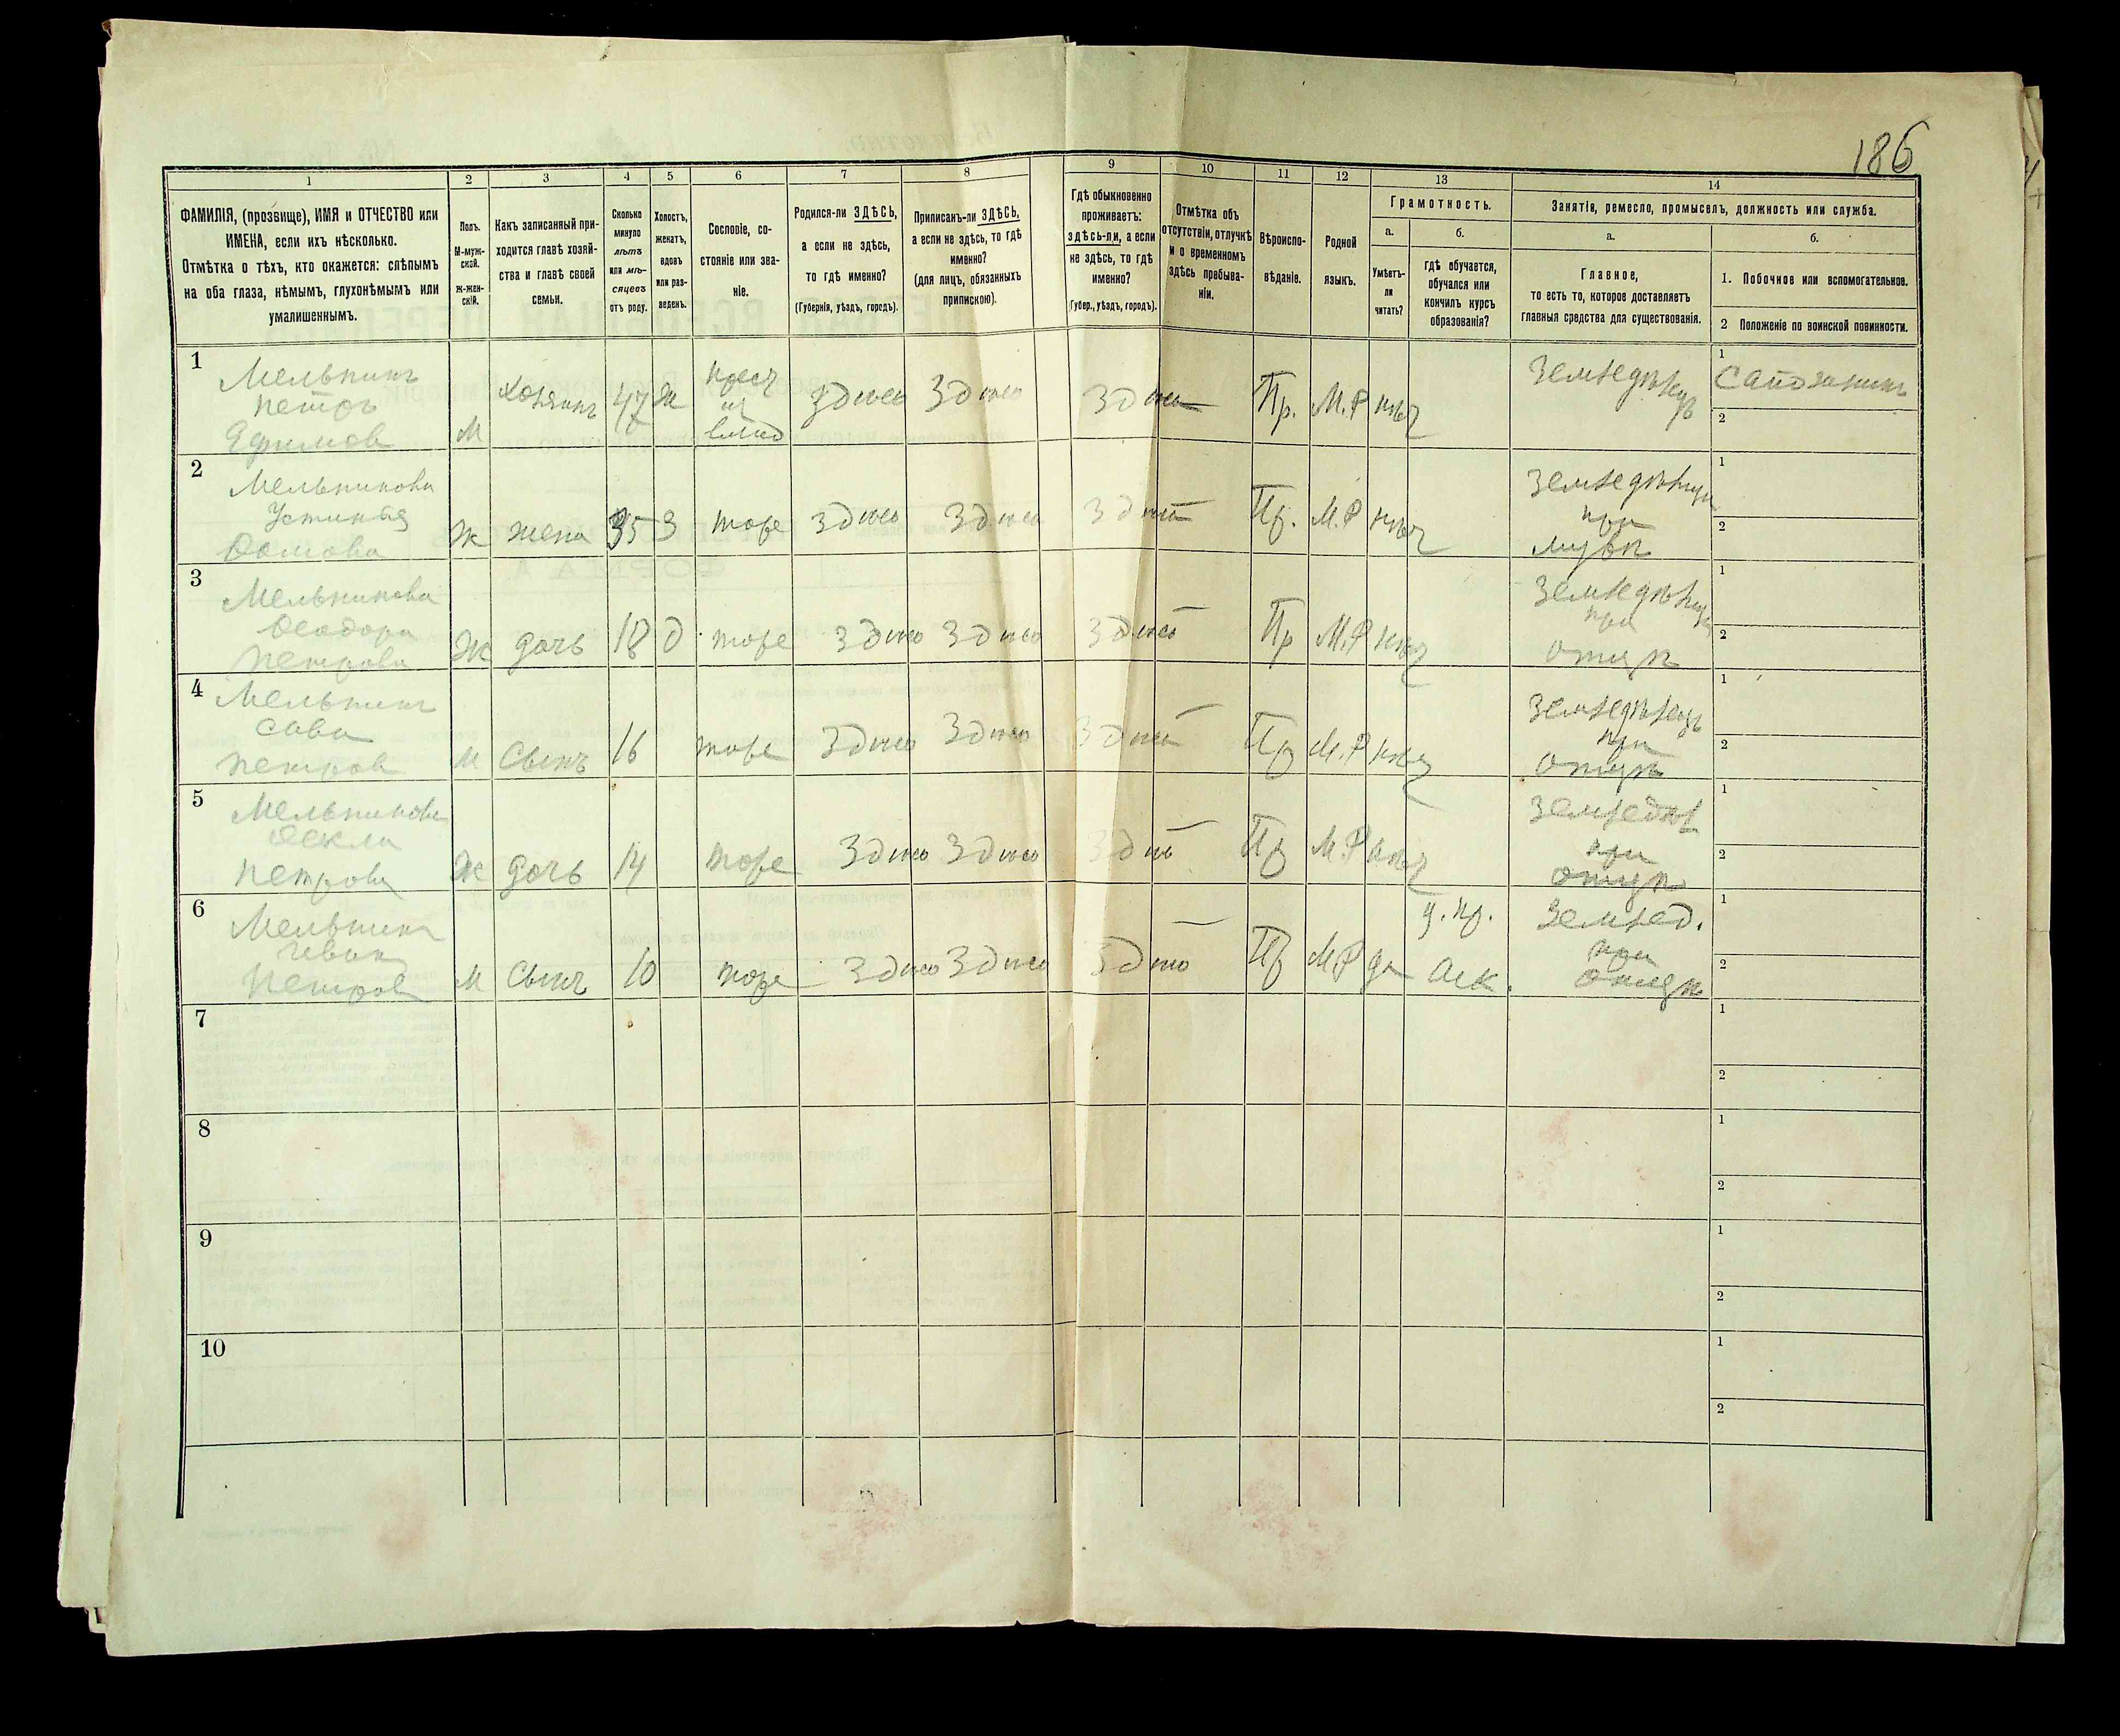 186
1 2 3 4 5 6 7 8 9 10 11 12 13 14
ФАМИЛІЯ, (прозвище), ИМЯ и ОТЧЕСТВО или
ИМЕНА, если ихъ нѣсколько.
Отмѣтка о тѣхъ, кто окажется: слѣпымъ
на оба глаза, нѣмымъ, глухонѣмымъ или
умалишеннымъ.
Полъ.
М-муж-
ской.
Ж-жен-
скій.
Какъ записанный при-
ходится главѣ хозяй-
ства и главѣ своей
семьи.
Сколько
минуло
лѣтъ
или мѣ-
сяцевъ
отъ роду.
Холостъ,
женатъ,
вдовъ
или раз-
веденъ.
Сословіе, со-
стояніе или зва-
ніе.
Родился-ли ЗДѢСЬ,
а если не здѣсь,
то гдѣ именно?
(Губернія, уѣздъ, городъ).
Приписанъ-ли ЗДѢСЬ,
а если не здѣсь, то гдѣ
именно?
(для лицъ, обязанныхъ
припискою).
Гдѣ обыкновенно
проживаетъ:
здѣсь-ли, а если
не здѣсь, то гдѣ
именно?
(Губер., уѣздъ, городъ).
Отмѣтка объ
отсутствіи, отлучкѣ
и о временномъ
здѣсь пребыва-
ніи.
Вѣроиспо-
вѣданіе.
Родной
языкъ.
Грамотность.
а.
Умѣетъ-
ли
читать?
б.
гдѣ обучается,
обучался или
кончилъ курсъ
образованія?
Занятія, ремесло, промыселъ, должность или служба.
а.
Главное,
то есть то, которое доставляетъ
главныя средства для существованія.
б.
1. Побочное или вспомогательное.
2 Положеніе по воинской повинности.
1
Мельникъ
Петръ
Ефимов
М
Хозяинъ
47
Ж
крес
из
здѣсь
здѣсь
здѣсь
Пр.
М.Р
нѣт
Земледѣлец
1
Сапожникъ
2
2
Мельникова
Устинья
Ж
жена
35
З
тоже
здѣсь
здѣсь
здѣсь
Пр.
М.Р
нѣт
Земледѣлица
при
мужѣ
1
2
3
Мельникова
Ѳеодора
Петрова
Ж
дочь
18
д
тоже
здѣсь
здѣсь
здѣсь
Пр
М.Р
нѣт
Земледѣлица
при
отцѣ
1
2
4
Мельникъ
Сава
Петров
М
Сынъ
16
тоже
здѣсь
здѣсь
здѣсь
Пр
М.Р
нѣт
Земледѣлец
при
отцѣ
1
2
5
Мельникова
Ѳекла
Петрова
Ж
дочь
14
тоже
здѣсь
здѣсь
здѣсь
Пр
М.Р
нѣт
Земледѣл
при
отцѣ
1
2
6
Мельникъ
Иван
Петров
М
Сынъ
10
тоже
здѣсь
здѣсь
здѣсь
Пр
М.Р
да
Землед.
при
отцѣ
1
2
7
1
2
8
1
2
9
1
2
10
1
2